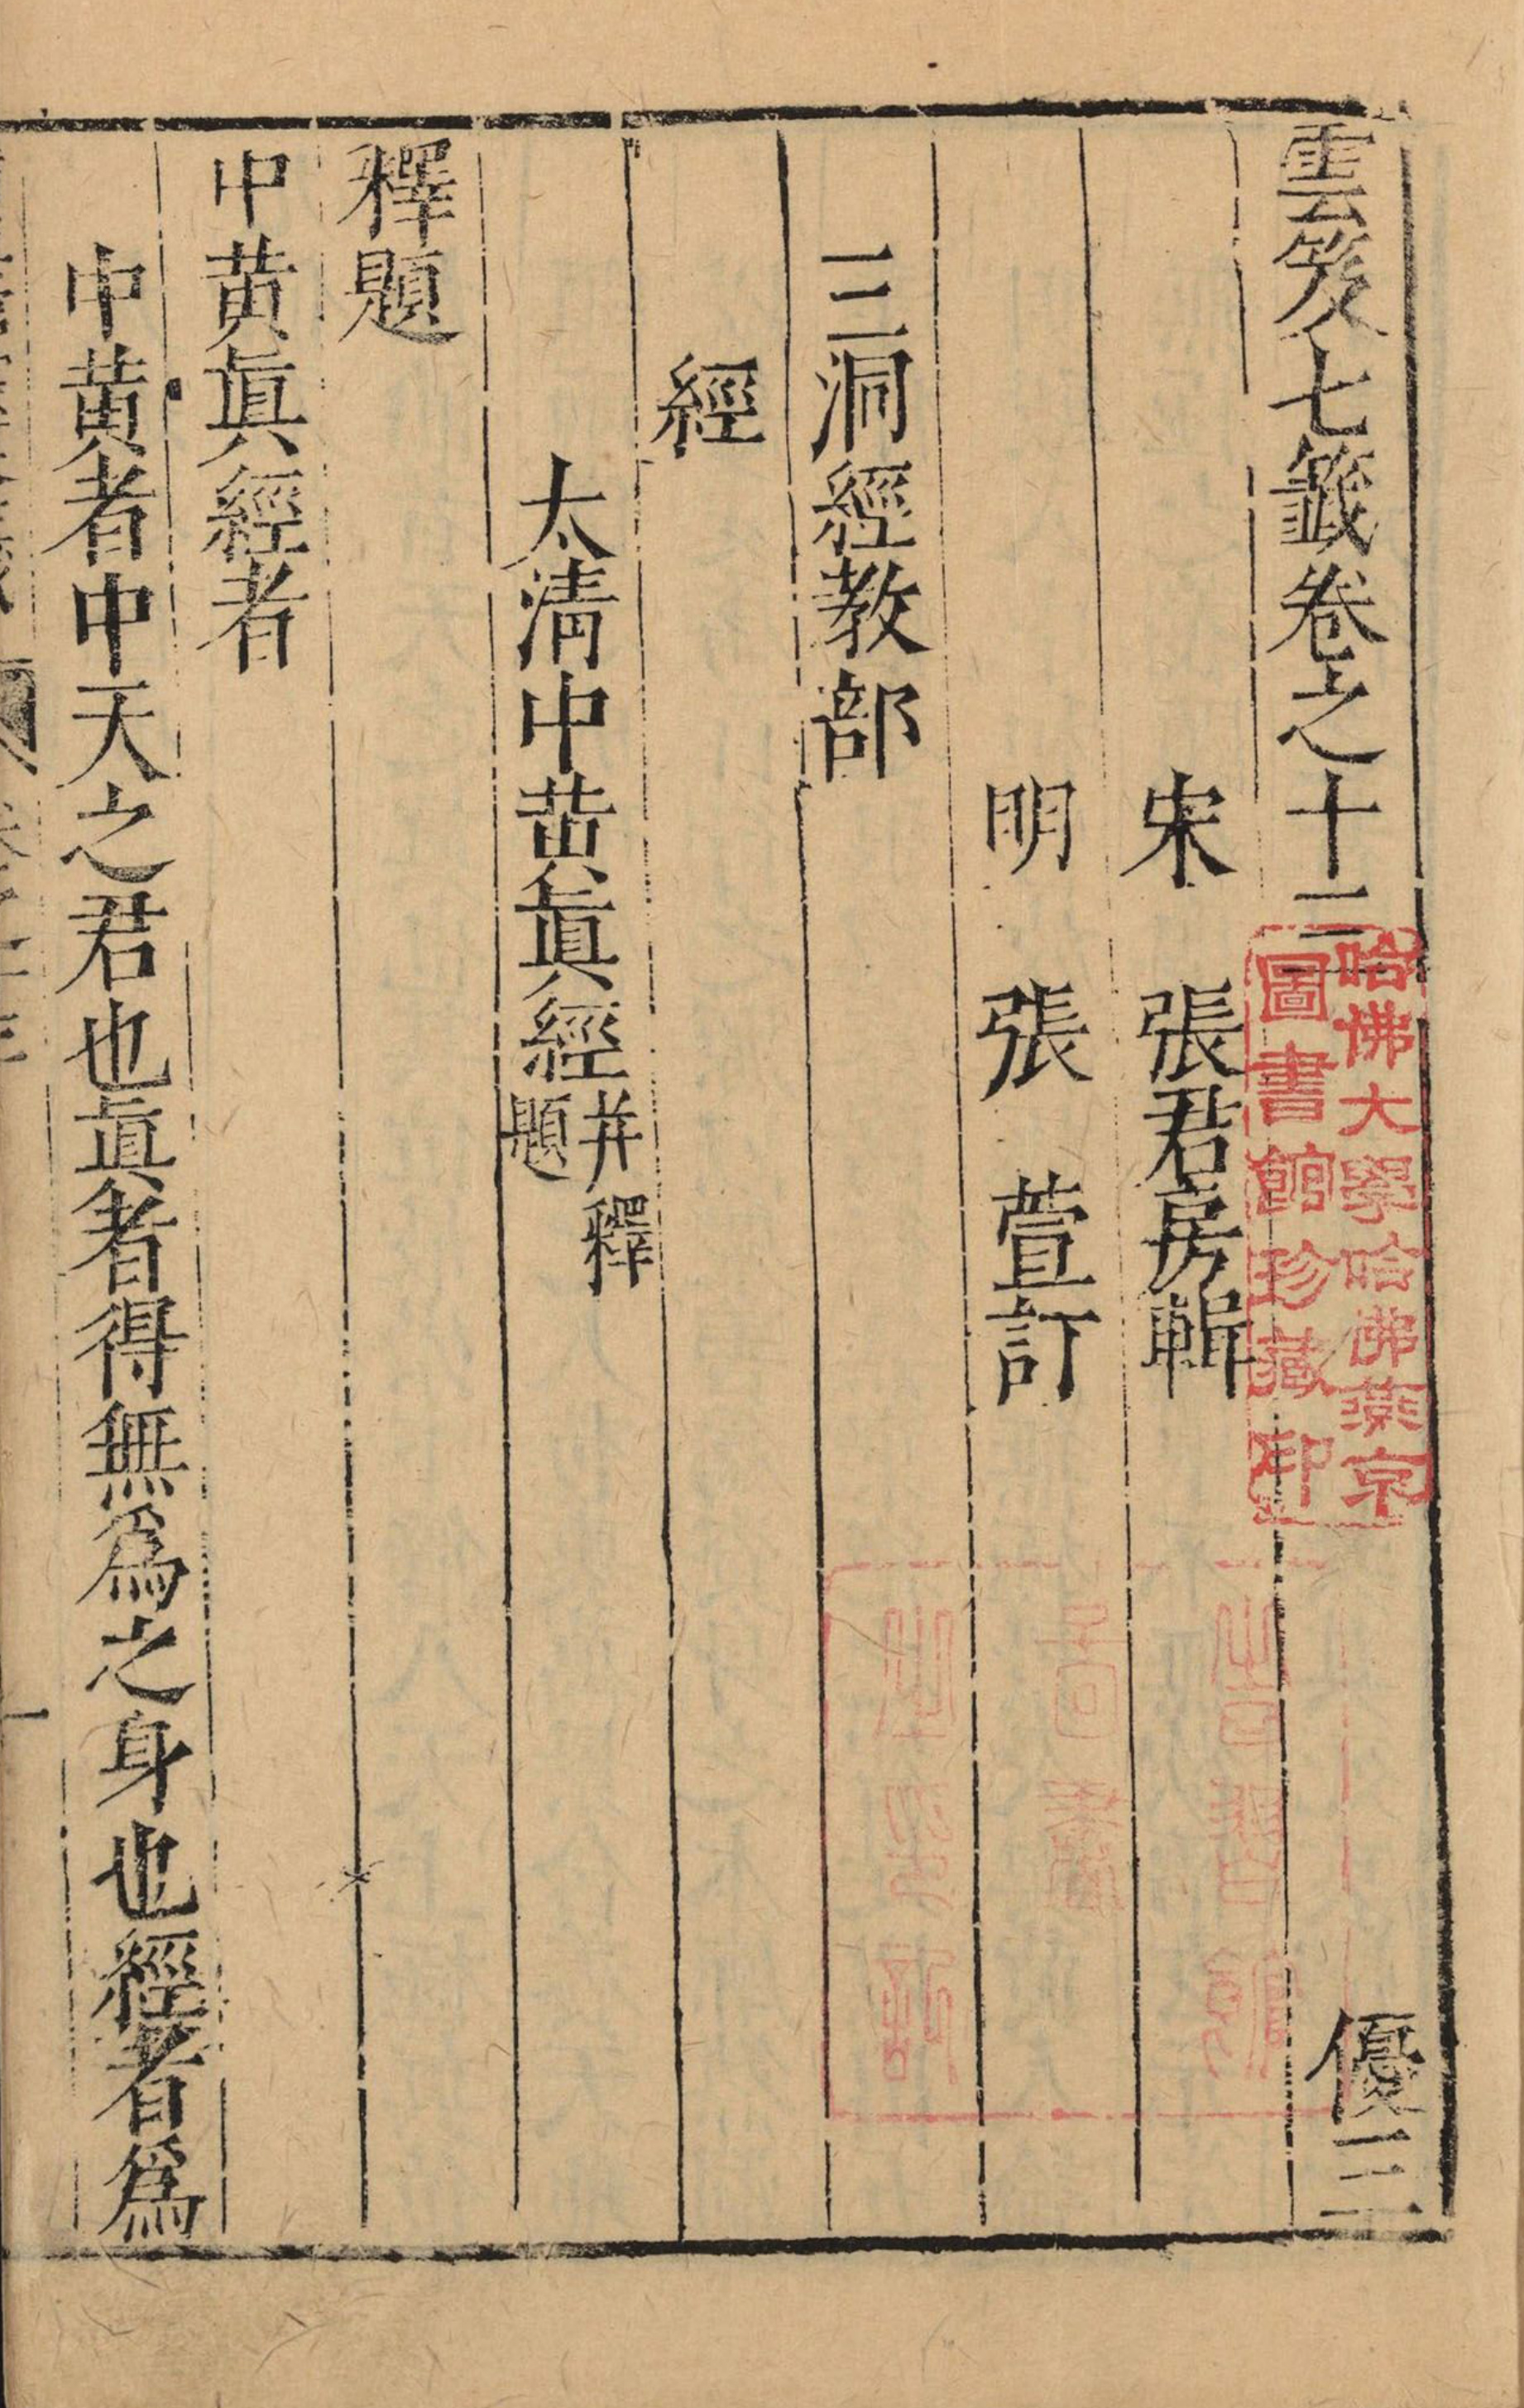 雲笈七籤卷之十三　優三
宋　張君房輯
明　張　萱訂
三洞經教部
經
太清中黃眞經并釋題
釋題
中黃眞經者
中黃者中天之君也眞者得無爲之身也經者爲
哈佛大學哈佛燕京
圖書館珍藏印